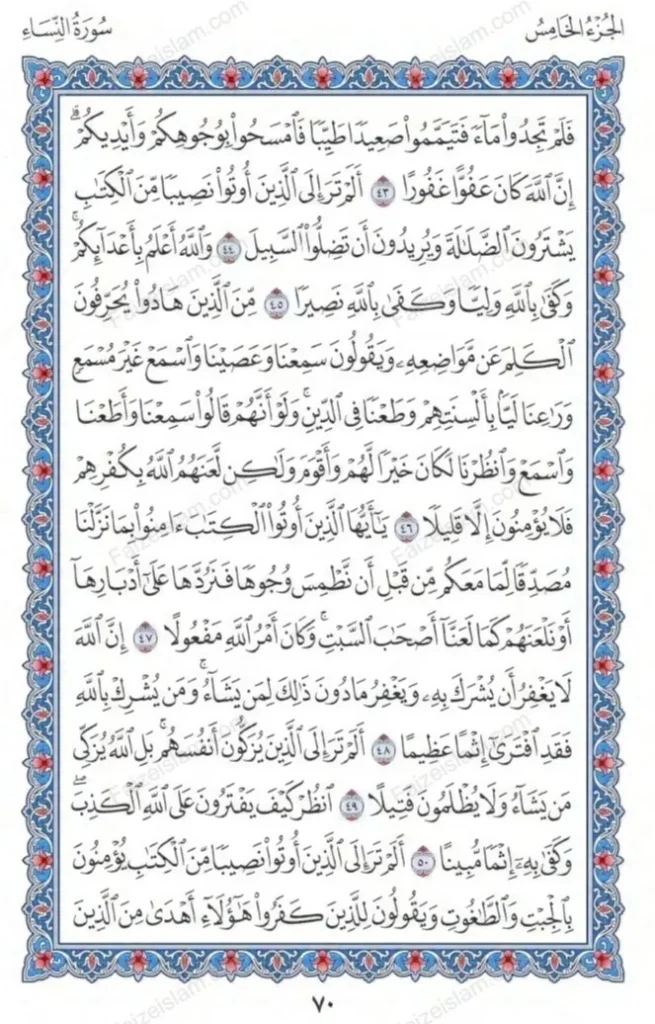 الجُزْءُ الخَامِسُ
سُورَةُ النِّسَاءِ
فَلَمۡ تَجِدُواْ مَآءٗ فَتَيَمَّمُواْ صَعِيدٗا طَيِّبٗا فَٱمۡسَحُواْ بِوُجُوهِكُمۡ وَأَيۡدِيكُمۡۗ
إِنَّ ٱللَّهَ كَانَ عَفُوًّا غَفُورًا ٤٣ أَلَمۡ تَرَ إِلَى ٱلَّذِينَ أُوتُواْ نَصِيبٗا مِّنَ ٱلۡكِتَٰبِ
يَشۡتَرُونَ ٱلضَّلَٰلَةَ وَيُرِيدُونَ أَن تَضِلُّواْ ٱلسَّبِيلَ ٤٤ وَٱللَّهُ أَعۡلَمُ بِأَعۡدَآئِكُمۡۚ
وَكَفَىٰ بِٱللَّهِ وَلِيّٗا وَكَفَىٰ بِٱللَّهِ نَصِيرٗا ٤٥ مِّنَ ٱلَّذِينَ هَادُواْ يُحَرِّفُونَ
ٱلۡكَلِمَ عَن مَّوَاضِعِهِۦ وَيَقُولُونَ سَمِعۡنَا وَعَصَيۡنَا وَٱسۡمَعۡ غَيۡرَ مُسۡمَعٖ
وَرَٰعِنَا لَيَّۢا بِأَلۡسِنَتِهِمۡ وَطَعۡنٗا فِي ٱلدِّينِۚ وَلَوۡ أَنَّهُمۡ قَالُواْ سَمِعۡنَا وَأَطَعۡنَا
وَٱسۡمَعۡ وَٱنظُرۡنَا لَكَانَ خَيۡرٗا لَّهُمۡ وَأَقۡوَمَ وَلَٰكِن لَّعَنَهُمُ ٱللَّهُ بِكُفۡرِهِمۡ
فَلَا يُؤۡمِنُونَ إِلَّا قَلِيلٗا ٤٦ يَٰٓأَيُّهَا ٱلَّذِينَ أُوتُواْ ٱلۡكِتَٰبَ ءَامِنُواْ بِمَا نَزَّلۡنَا
مُصَدِّقٗا لِّمَا مَعَكُم مِّن قَبۡلِ أَن نَّطۡمِسَ وُجُوهٗا فَنَرُدَّهَا عَلَىٰٓ أَدۡبَارِهَآ
أَوۡ نَلۡعَنَهُمۡ كَمَا لَعَنَّآ أَصۡحَٰبَ ٱلسَّبۡتِۚ وَكَانَ أَمۡرُ ٱللَّهِ مَفۡعُولًا ٤٧ إِنَّ ٱللَّهَ
لَا يَغۡفِرُ أَن يُشۡرَكَ بِهِۦ وَيَغۡفِرُ مَا دُونَ ذَٰلِكَ لِمَن يَشَآءُۚ وَمَن يُشۡرِكۡ بِٱللَّهِ
فَقَدِ ٱفۡتَرَىٰٓ إِثۡمًا عَظِيمًا ٤٨ أَلَمۡ تَرَ إِلَى ٱلَّذِينَ يُزَكُّونَ أَنفُسَهُمۚ بَلِ ٱللَّهُ يُزَكِّي
مَن يَشَآءُ وَلَا يُظۡلَمُونَ فَتِيلًا ٤٩ ٱنظُرۡ كَيۡفَ يَفۡتَرُونَ عَلَى ٱللَّهِ ٱلۡكَذِبَۖ
وَكَفَىٰ بِهِۦٓ إِثۡمٗا مُّبِينًا ٥٠ أَلَمۡ تَرَ إِلَى ٱلَّذِينَ أُوتُواْ نَصِيبٗا مِّنَ ٱلۡكِتَٰبِ يُؤۡمِنُونَ
بِٱلۡجِبۡتِ وَٱلطَّٰغُوتِ وَيَقُولُونَ لِلَّذِينَ كَفَرُواْ هَٰٓؤُلَآءِ أَهۡدَىٰ مِنَ ٱلَّذِينَ
٧٠
Faizeislam.com